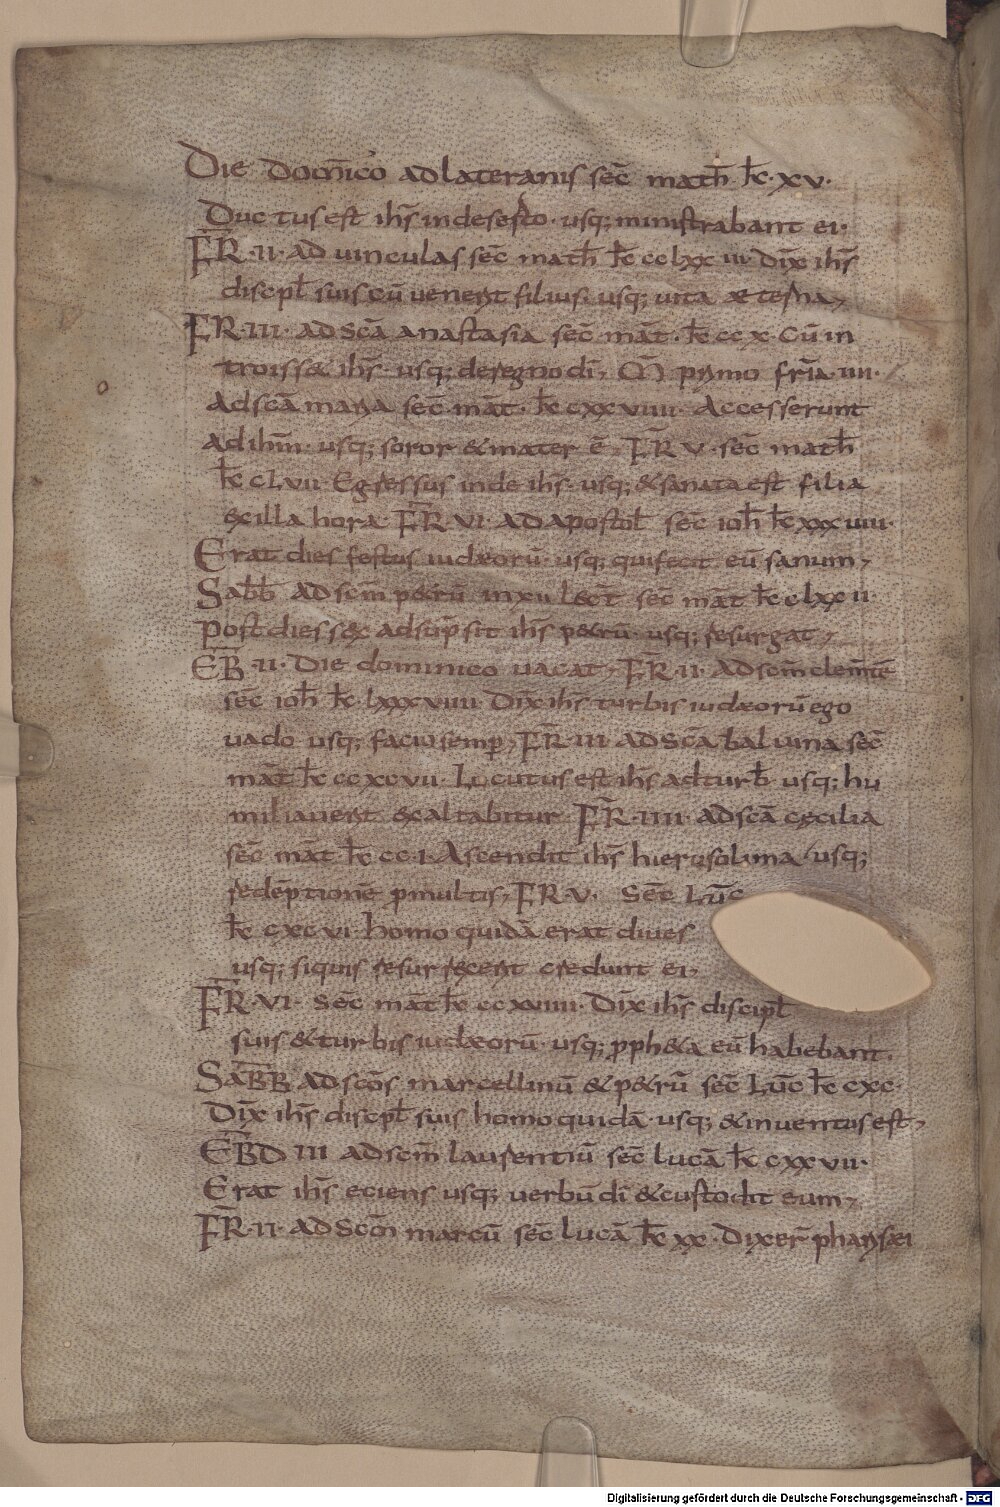 Die domīco ad lateranis secͫ math k̄ xv.
Ductus est ihs in deserto · usq; ministrabant ei·
FR · II · ad vinculas sec̄ math k̄ cclxxiii· Dix̄ ihs̄
discipł suis cū venerit filius · usq; vita aeterna,
FR · III · ad scā anastasia sec̄ māt · k̄ ccx · Cū in
troisset ihs̄ · usq; de regno dī, M primo fr̄ia · IIII ·
ad scā maria sec̄ māt · k̄ cxxviiii · Accesserunt
ad ihm̄ · usq; soror & mater ē, FR V · sec̄ math
k̄ clvii · Egressus inde ihs̄ · usq; & sanata est filia
ex illa hora FR VI · ad apostoł sec̄ ioh k̄ xxxviii·
Erat dies festus iudæorū · usq; qui fecit eū sanum,
Sabb ad scm̄ p&rū in xii lect sec̄ māt k̄ clxxii·
Post dies sex adsūpsit ihs̄ p&rū · usq; resurgat,
EB̄ · II · Die dominico vacat, FR · II · ad scm̄ clem̄te
sec̄ ioh k̄ lxxxviiii · Dix̄ ihs̄ turbis iudæorū ego
vado usq; facio semp, FR · III · ad scā balvina sec̄
māt k̄ ccxcvii · Locutus est ihs̄ ad turb · usq; hu
miliaverit exaltabitur FR · IIII · ad scā cęcilia
sec̄ māt k̄ cc · i · Ascendit ihs̄ hierusolima · usq;
redēptionē p multis, FR · V · sec̄ Lūc
k̄ cxcvi · homo quidā erat dives
usq; si quis resurrexerit credunt ei·
FR · VI · sec̄ māt k̄ ccxviiii · Dix̄ ihs̄ discipł
suis & turbis iudæorū · usq; pph&a eū habebant.
SABB ad scōs marcellinū & p&rū sec̄ Lūc k̄ cxc·
Dix̄ ihs̄ discipł suis homo quidā · usq; & inventus est,
EBD III ad scm̄ laurentiū sec̄ lucā k̄ cxxvii·
Erat ihs̄ eciens usq; verbū dī & custodit eum,
FR · II · ad scōm marcū sec̄ lucā k̄ xx · Dixer̄ pharisæi
Digitalisierung gefördert durch die Deutsche Forschungsgemeinschaft - DFG